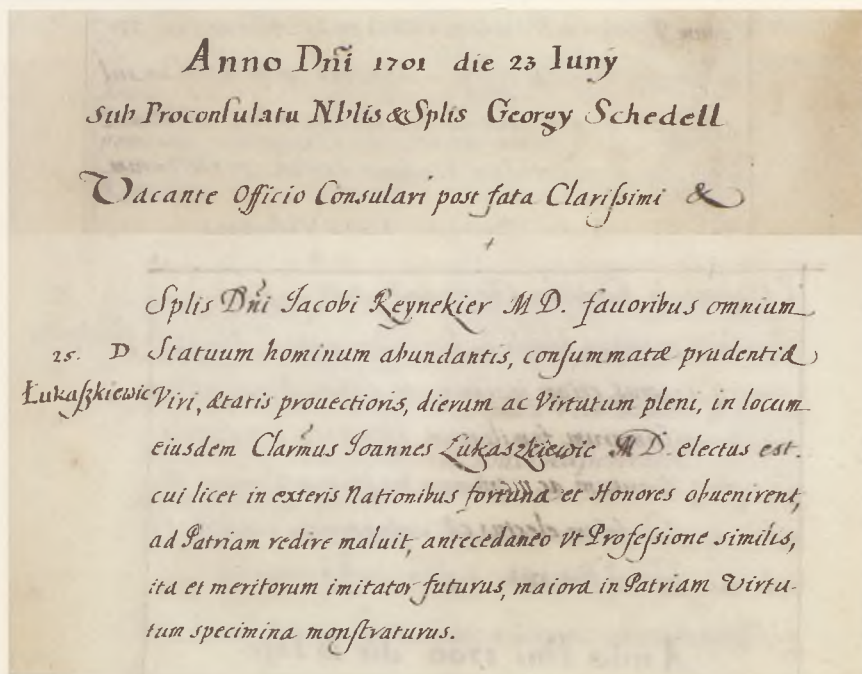 Anno Dñi 1701 die 23 Iuny
sub Proconsulatu Nblis & Splis Georgy Schedell
Vacante Officio Consulari post fata Clarissimi &
Splis Dñi Jacobi Reynekier MD. fauoribus omnium
25. D Statuum hominum abundantis, consummatæ prudentiæ
Łukaszkiewic Viri, ætatis prouectioris, dierum ac Virtutum pleni, in locum
eiusdem Clarmus Joannes Łukaszkiewic MD. electus est.
cui licet in exteris Nationibus fortuna et Honores obuenirent,
ad Patriam redire maluit, antecedaneo vt Professione similis,
ita et meritorum imitator futurus, maiora in Patriam Virtu-
tum specimina monstraturus.